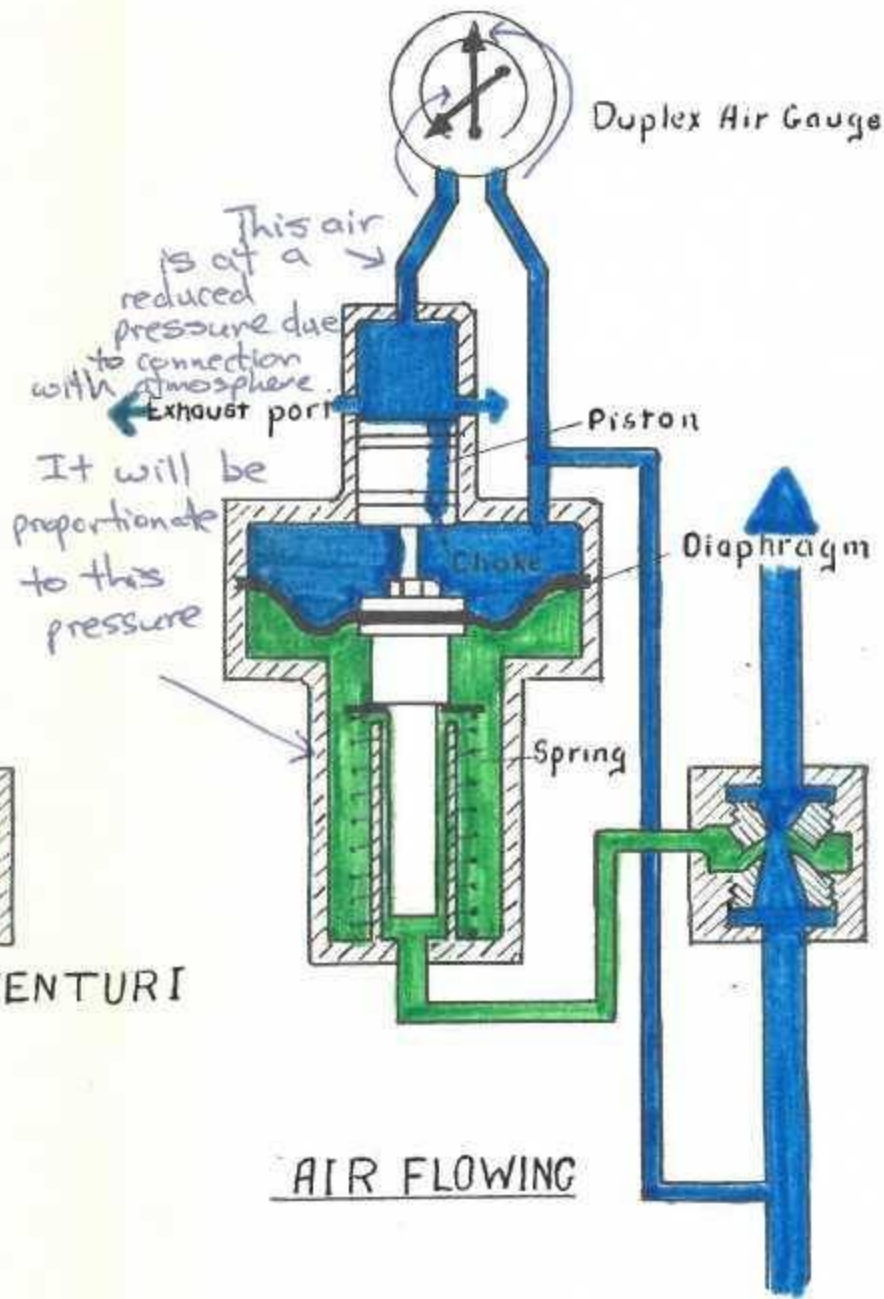 Duplex Air Gauge
This air
is at a
reduced
pressure due
to connection
with atmosphere
Exhaust port
Piston
It will be
proportionate
to this
pressure
Choke
Diaphragm
Spring
ENTURI
AIR FLOWING